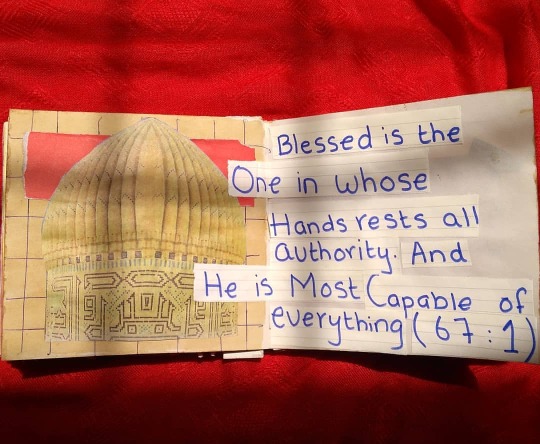 Blessed is the
One in whose
Hands rests all
authority. And
He is Most Capable of
everything (67:1)